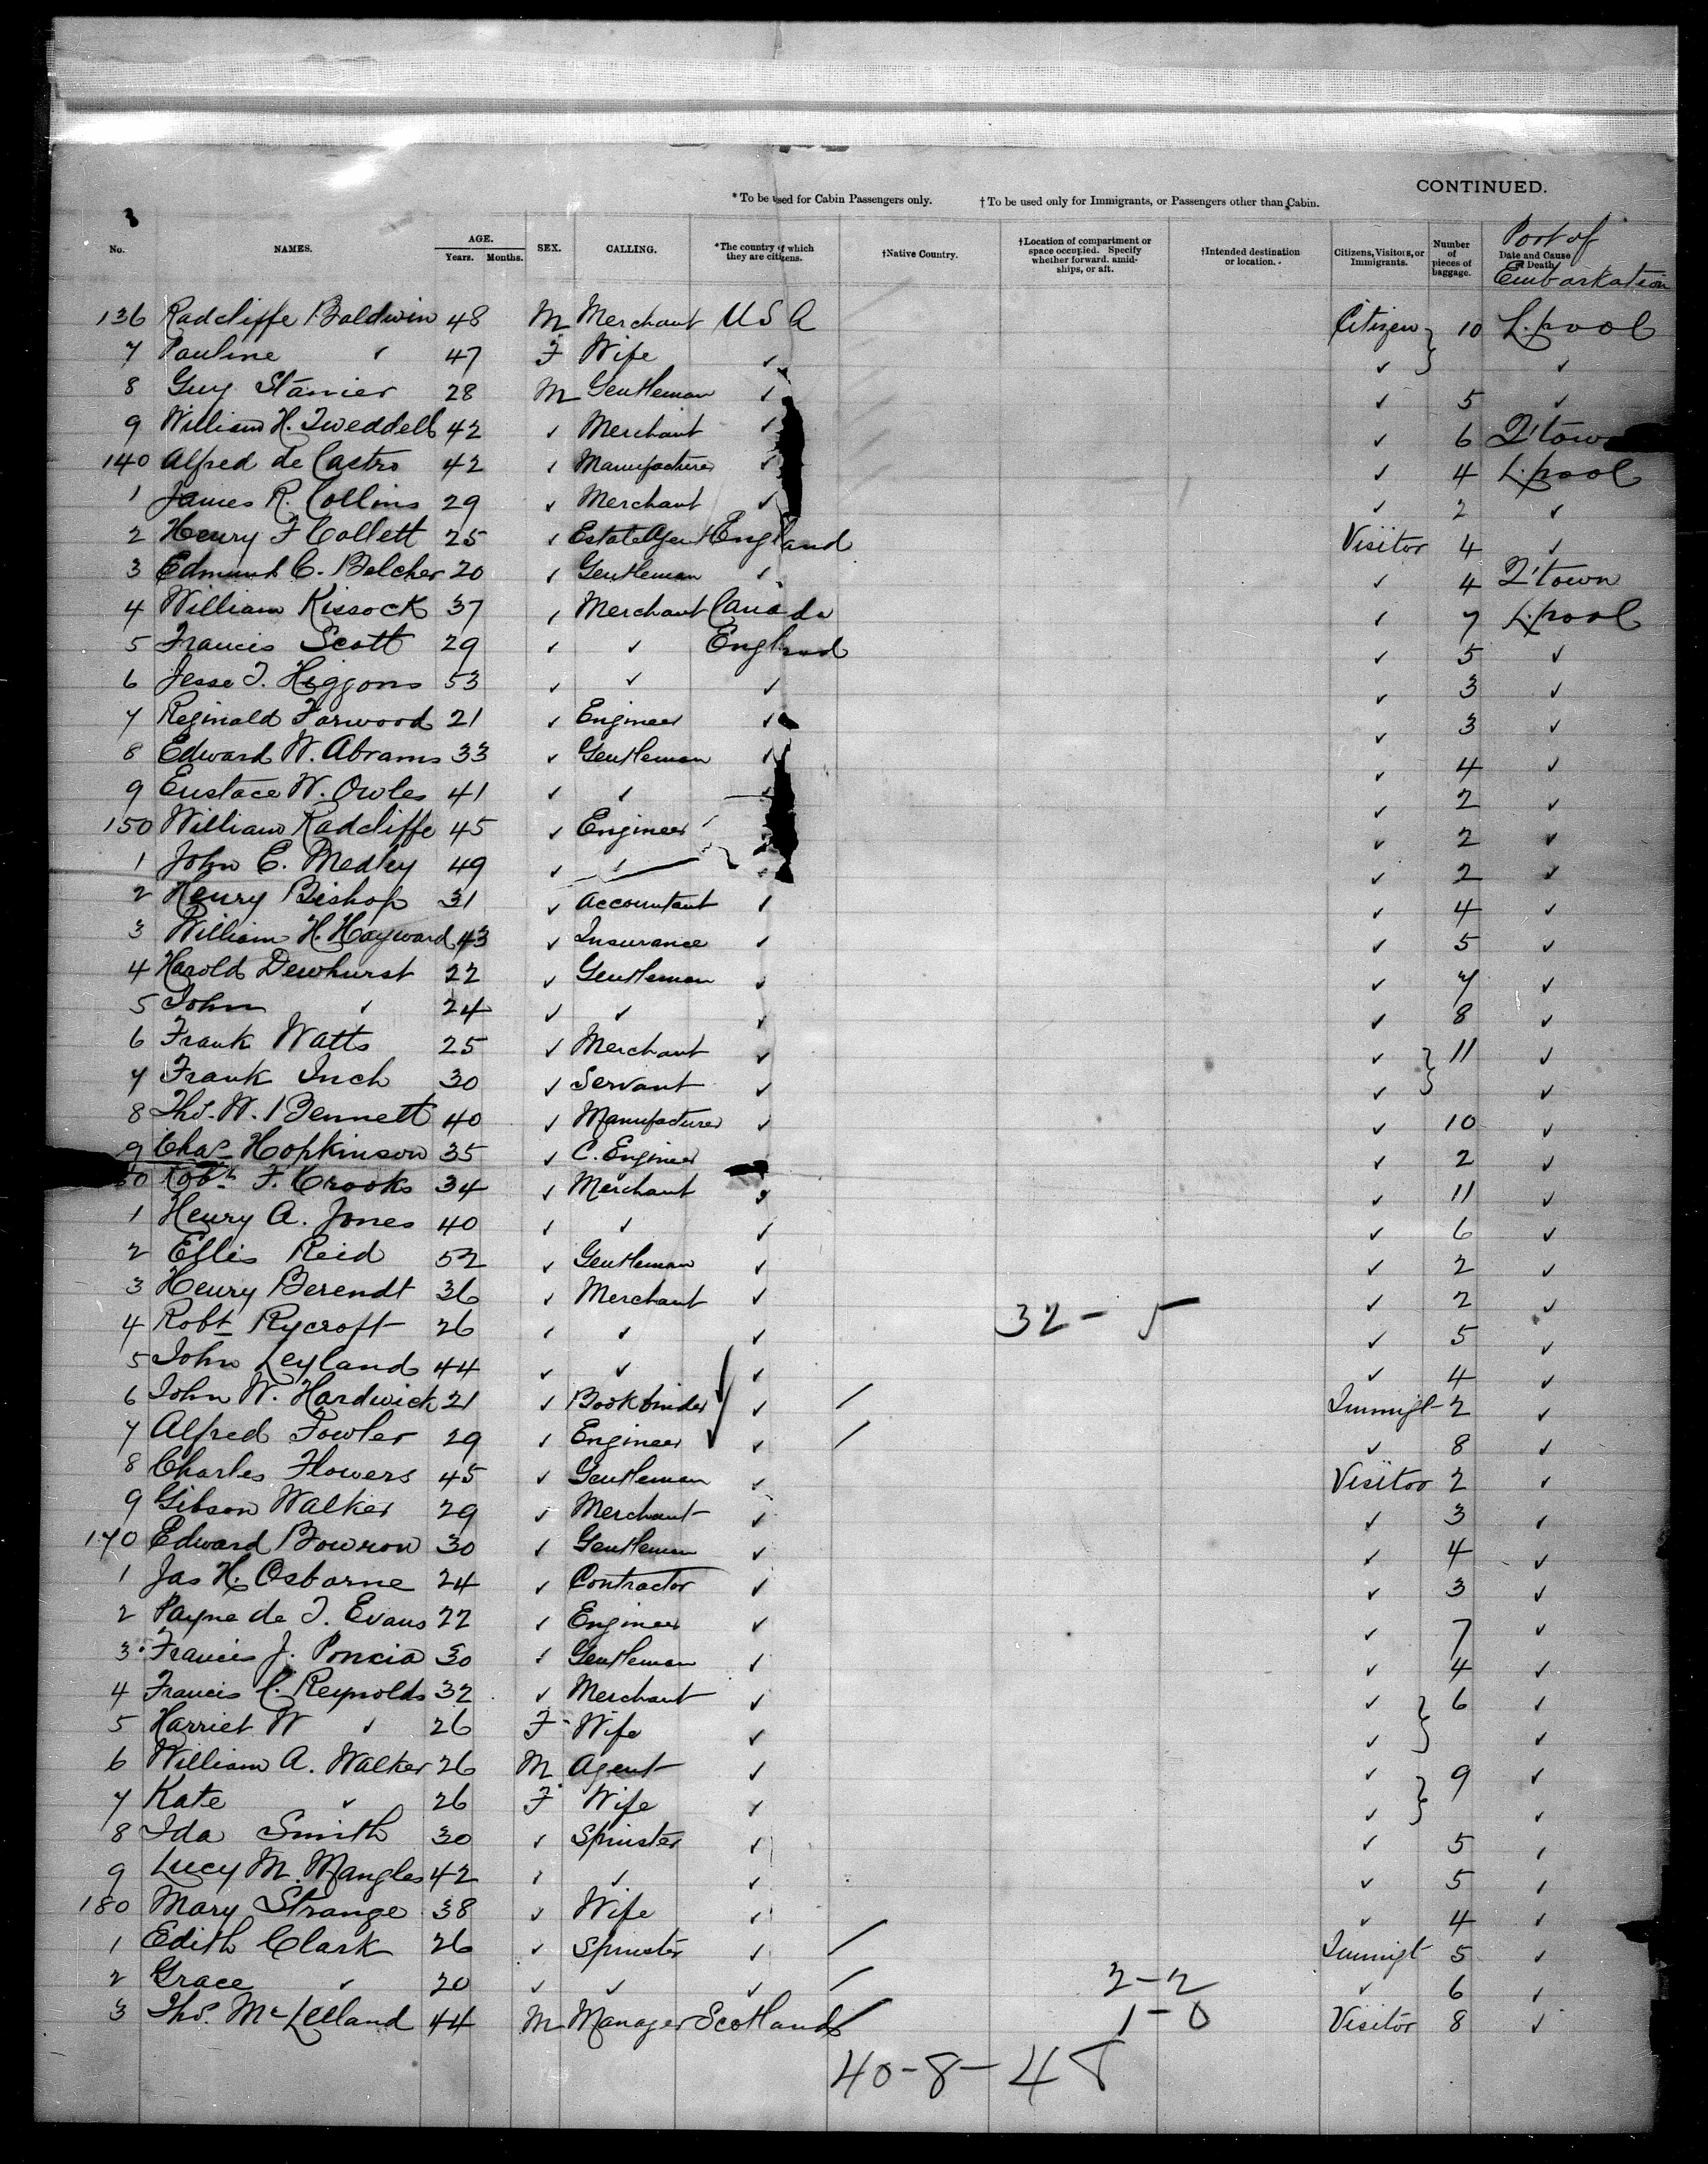 CONTINUED.
*To be used for Cabin Passengers only. †To be used only for Immigrants, or Passengers other than Cabin.
No. NAMES. AGE. Years. Months. SEX. CALLING. *The country of which they are citizens. †Native Country. †Location of compartment or space occupied. Specify whether forward, amidships, or aft. †Intended destination or location. Citizens, Visitors, or Immigrants. Number of pieces of baggage. Date and Cause of Death. Port of Embarkation
136 Radcliffe Baldwin 48 M Merchant USA Citizen } 10 L.pool
7 Pauline ✓ 47 F Wife ✓ ✓ ✓
8 Guy Stanier 28 M Gentleman ✓ ✓ 5 ✓
9 William H. Tweddell 42 ✓ Merchant ✓ ✓ 6 Q'town
140 Alfred de Castro 42 ✓ Manufacturer ✓ ✓ 4 L.pool
1 James R. Collins 29 ✓ Merchant ✓ ✓ 2 ✓
2 Henry F Collett 25 ✓ Estate Agent England Visitor 4 ✓
3 Edmund C. Belcher 20 ✓ Gentleman ✓ ✓ 4 Q'town
4 William Kissock 37 ✓ Merchant Canada ✓ 7 L.pool
5 Francis Scott 29 ✓ ✓ England ✓ 5 ✓
6 Jesse T. Higgons 53 ✓ ✓ ✓ ✓ 3 ✓
7 Reginald Farwood 21 ✓ Engineer ✓ ✓ 3 ✓
8 Edward W. Abrams 33 ✓ Gentleman ✓ ✓ 4 ✓
9 Eustace W. Owles 41 ✓ ✓ ✓ ✓ 2 ✓
150 William Radcliffe 45 ✓ Engineer ✓ 2 ✓
1 John E. Medley 49 ✓ ✓ ✓ ✓ 2 ✓
2 Henry Bishop 31 ✓ Accountant ✓ ✓ 4 ✓
3 William H. Hayward 43 ✓ Insurance ✓ ✓ 5 ✓
4 Harold Dewhurst 22 ✓ Gentleman ✓ ✓ 7 ✓
5 John ✓ 24 ✓ ✓ ✓ ✓ 8 ✓
6 Frank Watts 25 ✓ Merchant ✓ ✓ } 11 ✓
7 Frank Inch 30 ✓ Servant ✓ ✓ ✓
8 Thos. W. Bennett 40 ✓ Manufacturer ✓ ✓ 10 ✓
9 Chas Hopkinson 35 ✓ C. Engineer ✓ 2 ✓
60 Robt. F. Crooks 34 ✓ Merchant ✓ ✓ 11 ✓
1 Henry A. Jones 40 ✓ ✓ ✓ ✓ 6 ✓
2 Ellis Reid 52 ✓ Gentleman ✓ ✓ 2 ✓
3 Henry Berendt 36 ✓ Merchant ✓ ✓ 2 ✓
4 Robt Rycroft 26 ✓ ✓ ✓ 32 - 5 ✓ 5 ✓
5 John Leyland 44 ✓ ✓ ✓ ✓ 4 ✓
6 John W. Hardwick 21 ✓ Bookbinder ✓ / Immigt 2 ✓
7 Alfred Fowler 29 ✓ Engineer ✓ / ✓ 8 ✓
8 Charles Flowers 45 ✓ Gentleman ✓ Visitor 2 ✓
9 Gibson Walker 29 ✓ Merchant ✓ ✓ 3 ✓
170 Edward Bowron 30 ✓ Gentleman ✓ ✓ 4 ✓
1 Jas H. Osborne 24 ✓ Contractor ✓ ✓ 3 ✓
2 Payne de T. Evans 22 ✓ Engineer ✓ ✓ 7 ✓
3 Francis J. Poncia 30 ✓ Gentleman ✓ ✓ 4 ✓
4 Francis C. Reynolds 32 ✓ Merchant ✓ ✓ } 6 ✓
5 Harriet W ✓ 26 F Wife ✓ ✓ ✓
6 William A. Walker 26 M Agent ✓ ✓ } 9 ✓
7 Kate ✓ 26 F Wife ✓ ✓ ✓
8 Ida Smith 30 ✓ Spinster ✓ ✓ 5 ✓
9 Lucy M. Mangles 42 ✓ ✓ ✓ ✓ 5 ✓
180 Mary Strange 38 ✓ Wife ✓ ✓ 4 ✓
1 Edith Clark 26 ✓ Spinster ✓ / Immigt 5 ✓
2 Grace ✓ 20 ✓ ✓ ✓ / 2-2 ✓ 6 ✓
3 Thos. McLelland 44 M Manager Scotland / 1-0 Visitor 8 ✓
40-8-48